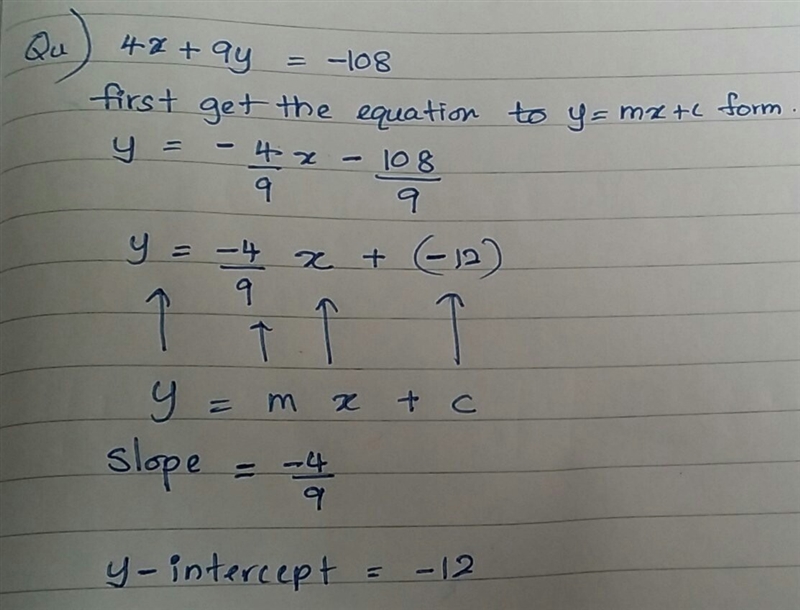 Qu) 4x + 9y = -108
first get the equation to y = mx+c form.
y = - 4/9 x - 108/9
y = -4/9 x + (-12)
↑ ↑ ↑ ↑
y = m x + c
slope = -4/9
y-intercept = -12